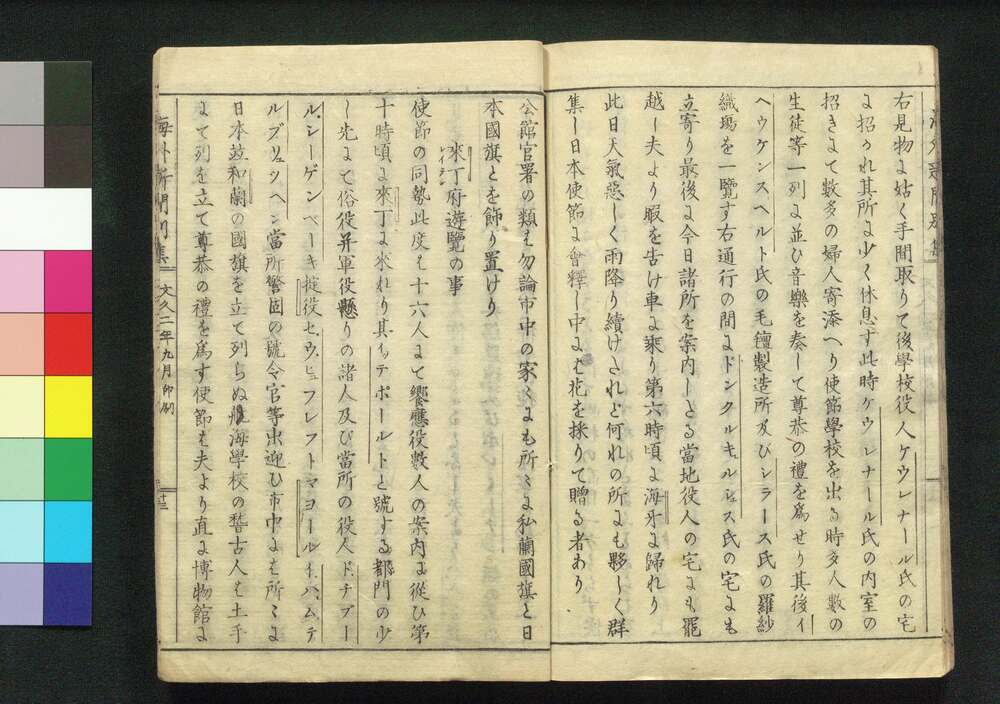 右見物に姑く手間取りて後學校役人ケウレナール氏の宅
に招かれ其所に少く休息す此時ケウレナール氏の内室の
招きにて數多の婦人寄添へり使節學校を出る時多人數の
生徒等一列に並ひ音樂を奏して尊恭の禮を爲せり其後イ
ヘウケンスヘルト氏の毛氈製造所及びシラース氏の羅紗
織場を一覽す右通行の間にドンクルキュルシュス氏の宅にも
立寄り最後に今日諸所を案内しとる當地役人の宅にも罷
越し夫より暇を告け車に乘り第六時頃に海牙に歸れり
此日天氣惡しく雨降り續けたれど何れの所にも夥しく群
集し日本使節に會釋し中には花を採りて贈る者あり
公館官署の類は勿論市中の家々にも所々に私蘭國旗と日
本國旗とを飾り置けり
來丁府遊覽の事
レイデン
使節の同勢此度は十六人にて饗應役數人の案内に從ひ第
十時頃に來丁に來れり其イッテポールトと號する都門の少
し先にて俗役昇軍役懸りの諸人及び當所の役人ド、チプー
ル、シーゲンベーキ掟役セ、ウ、ヒュフレフトマヨール、イ、ハ、ムテ
ルブリュツヘン當所警固の號令官等出迎ひ市中には所々に
日本並和蘭の國旗を立て列らぬ航海學校の稽古人は土手
にて列を立て尊恭の禮を爲す使節は夫より直に博物館に
海外新聞別集
文久二年九月印刷
十三